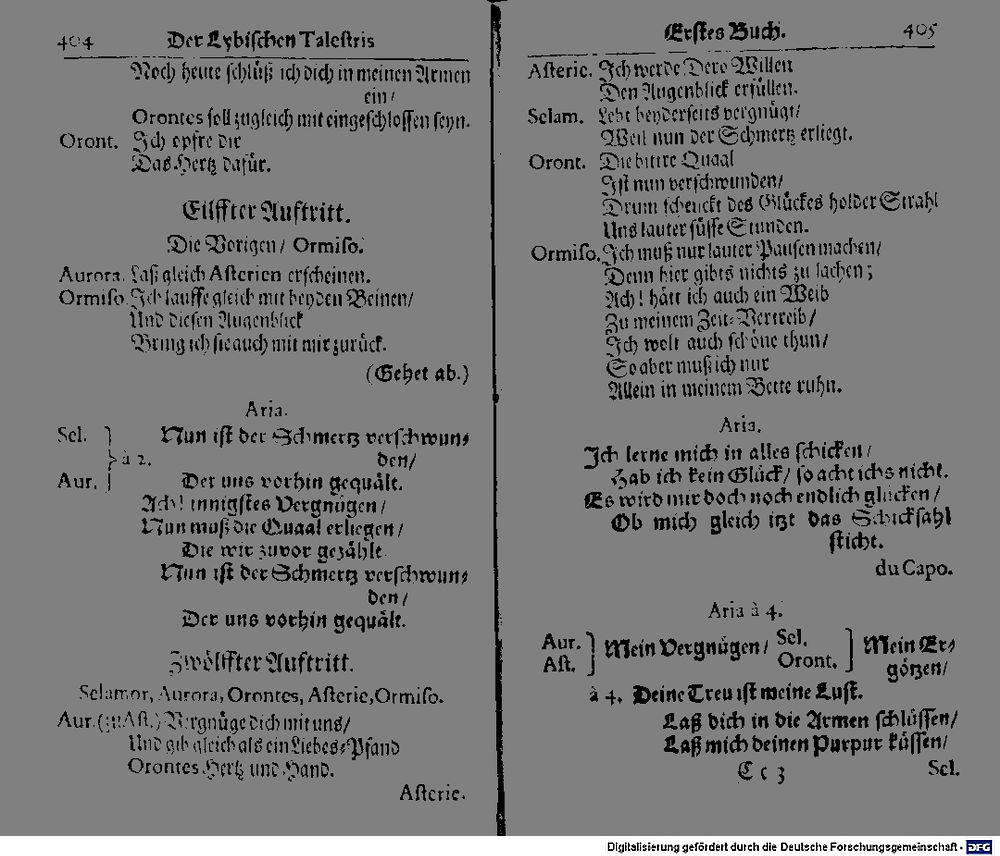 404 Der Lybischen Talestris
Noch heute schlüß ich dich in meinen Armen
ein/
Orontes soll zugleich mit eingeschlossen seyn.
Oront. Ich opfre dir
Das Hertz dafür.
Eilffter Auftritt.
Die Vorigen/ Ormiso.
Aurora. Laß gleich Asterien erscheinen.
Ormiso. Ich lauffe gleich mit beyden Beinen/
Und diesen Augenblick
Bring ich sie auch mit mir zurück.
(Gehet ab.)
Aria.
Sel. Nun ist der Schmertz verschwun-
à 2. den/
Aur. Der uns vorhin gequält.
Ach! innigstes Vergnügen/
Nun muß die Quaal erliegen/
Die wir zuvor gezählt.
Nun ist der Schmertz verschwun-
den/
Der uns vorhin gequält.
Zwölffter Auftritt.
Selamor, Aurora, Orontes, Asterie, Ormiso.
Aur. (zu Ast.) Vergnüge dich mit uns/
Und gib gleich als ein Liebes-Pfand
Orontes Hertz und Hand.
Asterie.
Erstes Buch. 405
Asterie. Ich werde Dero Willen
Den Augenblick erfüllen.
Selam. Lebt beyderseits vergnügt/
Weil nun der Schmertz erliegt.
Oront. Die bittre Quaal
Ist nun verschwunden/
Drum schenckt des Glückes holder Strahl
Uns lauter süsse Stunden.
Ormiso. Ich muß nur lauter Pausen machen/
Denn hier gibts nichts zu lachen;
Ach! hätt ich auch ein Weib
Zu meinem Zeit-Vertreib/
Ich wolt auch schöne thun/
So aber muß ich nur
Allein in meinem Bette ruhn.
Aria.
Ich lerne mich in alles schicken/
Hab ich kein Glück/ so acht ichs nicht.
Es wird mir doch noch endlich glücken/
Ob mich gleich itzt das Schicksahl
sticht.
du Capo.
Aria à 4.
Aur. Ast. Mein Vergnügen/ Sel. Oront. Mein Er-
götzen/
à 4. Deine Treu ist meine Lust.
Laß dich in die Armen schlüssen/
Laß mich deinen Purpur küssen/
C c 3 Sel.
Digitalisierung gefördert durch die Deutsche Forschungsgemeinschaft - DFG